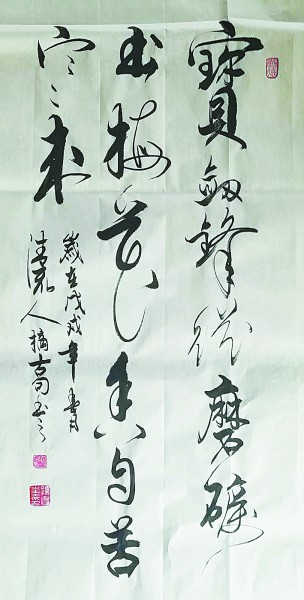 寶劍鋒從磨礪
出梅花香自苦
寒來
歲在戊戌年
清流人